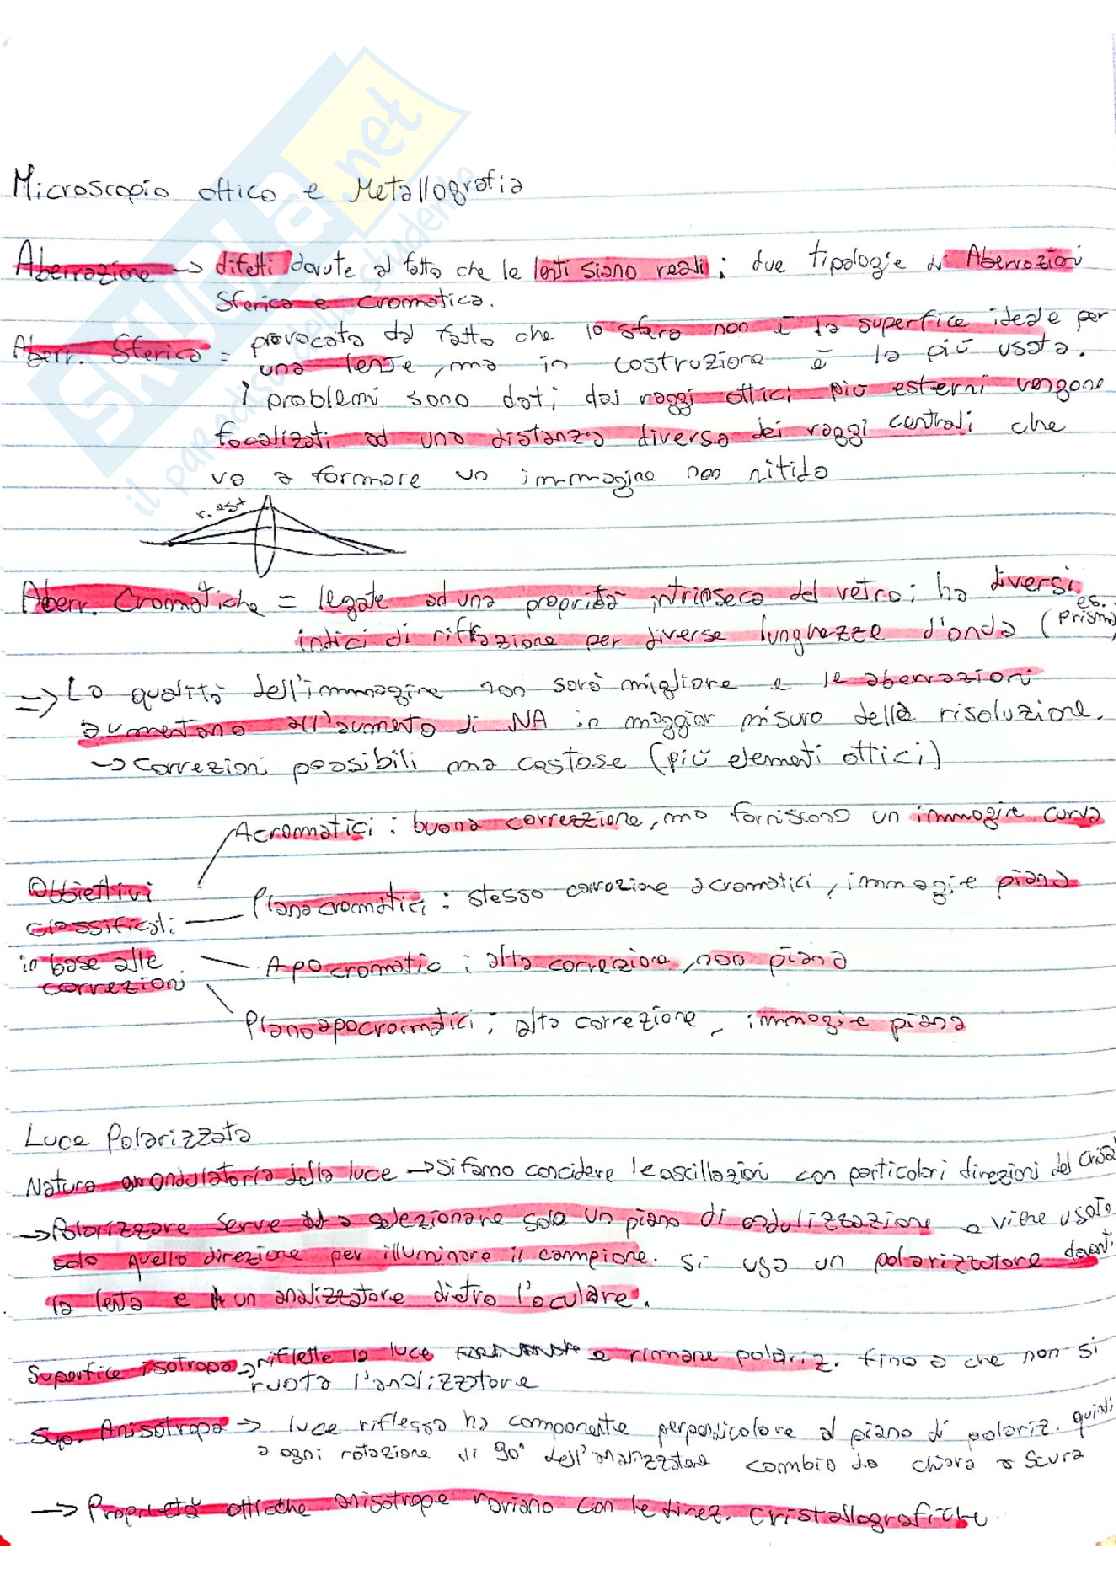 Microscopio ottico e Metallografia
Aberrazione → difetti dovute al fatto che le lenti siano reali; due tipologie di Aberrazioni
Sferica e cromatica.
Aberr. Sferica = provocata dal fatto che la sfera non è la superfice ideale per
una lente, ma in costruzione è la più usata.
I problemi sono dati dai raggi ottici più esterni vengono
focalizati ad una distanza diversa dei raggi centrali che
va a formare un immagine non nitida
r. est
Aberr. Cromatiche = legate ad una proprietà intrinseca del vetro; ha diversi
indici di riffrazione per diverse lunghezze d'onda (es. Prisma)
=> La qualità dell'immagine non sarà migliore e le aberrazioni
aumentano all'aumento di NA in maggior misura della risoluzione.
→ correzioni possibili ma costose (più elementi ottici)
Acromatici: buona correzzione, ma forniscono un immagie curva
Obbiettivi
classificati
in base alle
correzioni
Planacromatici: stesso correzione acromatici, immagie piana
Apocromatic: alta correzione, non piana
Planoapocromatici: alta correzione, immagie piana
Luce Polarizzata
Natura ondulatoria della luce → si famo concidere le oscillazioni con particolari direzioni del
→ Polarizzare serve a selezionare solo un piano di ondulizzazione e viene usata
solo quella direzione per illuminare il campione. Si usa un polarizzatore davanti
la lente e un analizzatore dietro l'oculare.
Superfice isotropa → riflette la luce e rimane polariz. fino a che non si
ruota l'analizzatore
Sup. Anisotropa → luce riflessa ha componente perpendicolare al piano di polariz. quindi
a ogni rotazione di 90° dell'analizzatore cambio da chiara a scura
→ Proprietà ottiche anisotrope variano con le direz. cristallografiche